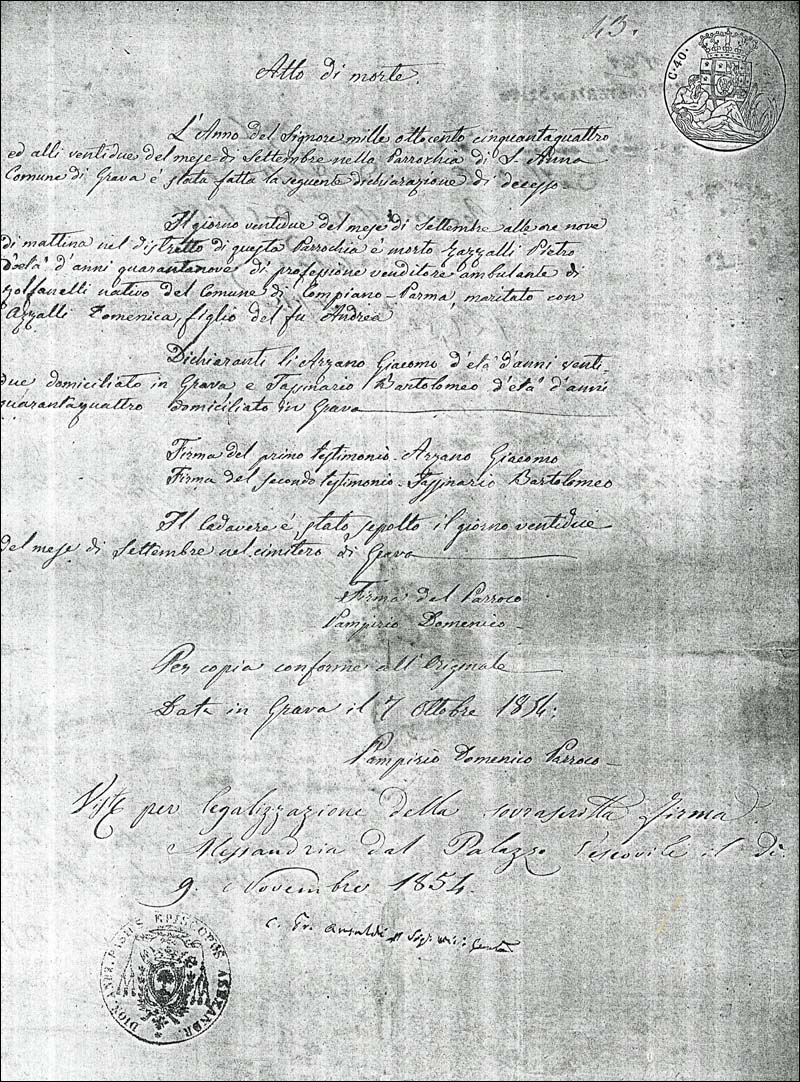 13.
C. 40.
Atto di morte.
L'Anno del Signore mille ottocento cinquantaquattro
ed alli ventidue del mese di Settembre nella Parrochia di S. Anna
Comune di Grava è stata fatta la seguente dichiarazione di decesso
Il giorno ventidue del mese di Settembre alle ore nove
di mattina nel distretto di questa Parrochia è morto Zazzalli Pietro
d'età d'anni quarantanove di professione venditore ambulante di
zolfanelli nativo del Comune di Compiano-Parma, maritato con
Azzalli Domenica, figlio del fu Andrea
Dichiaranti li Arzano Giacomo d'età d'anni venti-
due domiciliato in Grava e Tassinario Bartolomeo d'età d'anni
quarantaquattro domiciliato in Grava
Firma del primo testimonio - Arzano Giacomo
Firma del secondo testimonio - Tassinario Bartolomeo
Il cadavere è stato sepolto il giorno ventidue
del mese di Settembre nel cimitero di Grava
Firma del Parroco
Pampirio Domenico
Per copia conforme all'Originale
Data in Grava il 7 Ottobre 1854:
Pampirio Domenico Parroco
Visto per legalizzazione della sovrascritta firma
Alessandria dal Palazzo Vescovile il dì
9. Novembre 1854.
EPISCOPUS ALEXANDR.